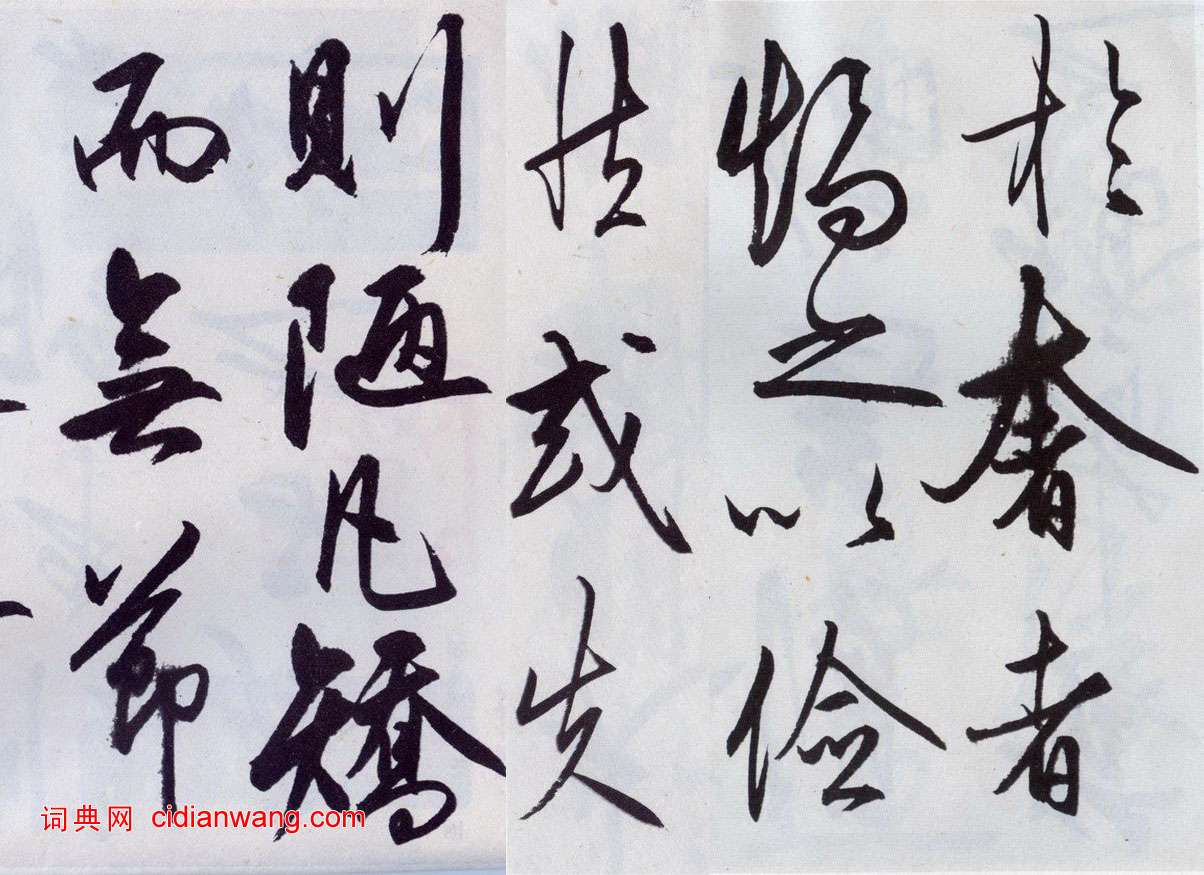 於奢者
矯之以儉
然或失
則陋凡矯
而無節
词典网 cidianwang.com